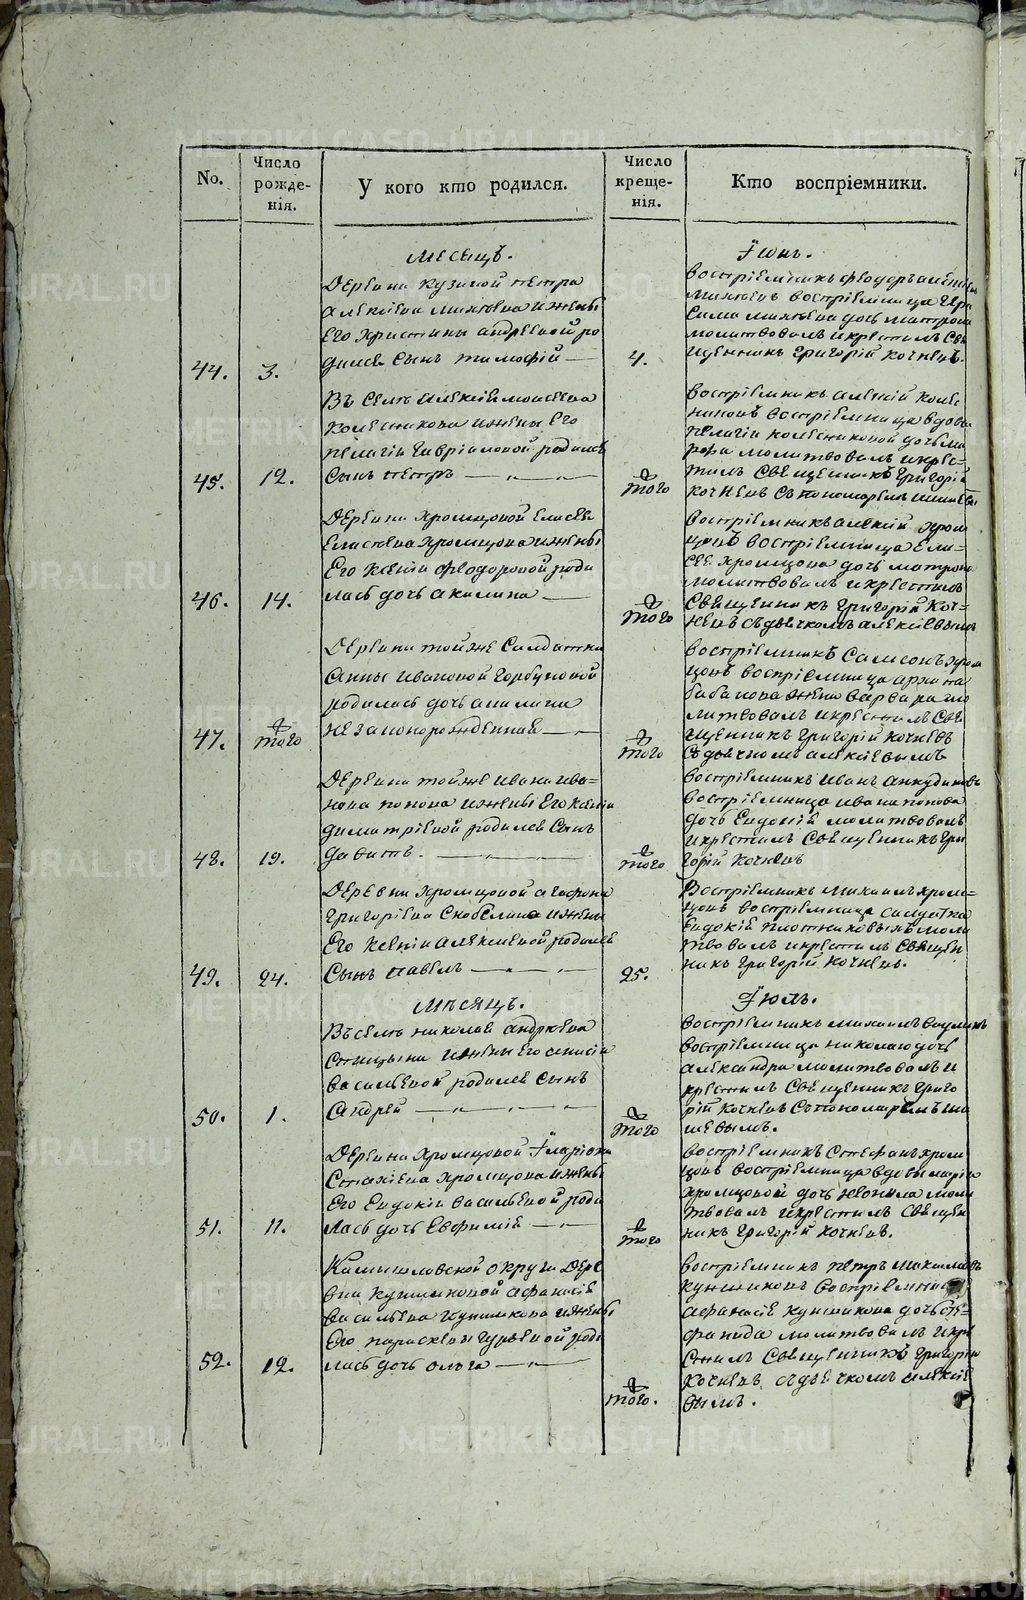 No.
Число рожденія.
У кого кто родился.
Число крещенія.
Кто воспріемники.
Месяцъ.
Іюнь.
44.
3.
Деревни Кузиной Петра
Алексіева ... и жены
Его Христины Андреевой ро
дился Сынъ Тимофій
4.
воспріемникъ Феодоръ
воспріемница
дочь Матрона
молитвовалъ и крестилъ Свя
щенникъ Григорій Кочневъ.
45.
12.
Въ Селе Алексія Моисеева
Колесникова и жены Его
Пелагіи Гавриловой родился
Сынъ Петръ
того
воспріемникъ Алексій Колес
никовъ воспріемница вдовы
Пелагіи Колесниковой дочь Ма
рфа молитвовалъ и крес=
тилъ Священникъ Григорій
Кочневъ с пономаремъ
46.
14.
Деревни Хромцовой Елисея
Хромцова и жены
Его Ксеніи Феодоровой роди
лась дочь Акилина
того
воспріемникъ Алексій Хром
цовъ воспріемница Ели=
сея Хромцова дочь Матрона
молитвовалъ и крестилъ
Священникъ Григорій Коч=
невъ с дьячкомъ Алексіевымъ
47.
того
Деревни тойже Салдатки
Анны Ивановой Горбуновой
родилась дочь
незаконорожденная
того
воспріемникъ Самсонъ Хром
цовъ воспріемница
жена Варвара мо
литвовалъ и крестилъ Свя
щенникъ Григорій Кочневъ
с дьячкомъ Алексіевымъ
48.
19.
Деревни тойже Ивана Ива=
нова Попова и жены Его Ксеніи
Димитріевой родился Сынъ
Давитъ.
того
воспріемникъ Иванъ
воспріемница Ивана Попова
дочь Евдокія молитвовалъ
и крестилъ Священникъ Гри
горій Кочневъ
49.
24.
Деревни Хромцовой Агафона
Григоріева Скобелина и жены
Его Ксеніи Алексеевой родился
Сынъ Павелъ
25.
Воспріемникъ Михаилъ Хром=
цовъ воспріемница салдатка
Евдокія Плотниковыхъ моли
твовалъ и крестилъ Священ
никъ Григорій Кочневъ.
Месяцъ.
Іюль.
50.
1.
Въ селе Николая Андреева
и жены Его
Васильевой родился Сынъ
Андрей
того
воспріемникъ Михаилъ
воспріемница Николаю дочь
Александра молитвовалъ и
крестилъ Священникъ Григо
рій Кочневъ с пономаремъ
51.
11.
Деревни Хромцовой Іларіона
Хромцова и жены
Его Евдокіи Васильевой роди
лась дочь Евфимія
того
воспріемникъ Стефанъ Хром
цовъ воспріемница вдовы Маріи
Хромцовой дочь Неонила моли
твовалъ и крестилъ Священ
никъ Григорій Кочневъ.
52.
12.
Камышловской округи Дере
вни Куншиковой Афанасія
Васильева Куншикова и жены
Его Параскеви Гурьевой роди
лась дочь Ольга
того.
воспріемникъ Петръ Михаиловъ
Куншиковъ воспріемница
Афанасія Куншикова дочь Сте=
фанида молитвовалъ и кре
стилъ Священникъ Григорій
Кочневъ с дьячкомъ Алексіе
вымъ.
METRIKI.GASO-URAL.RU